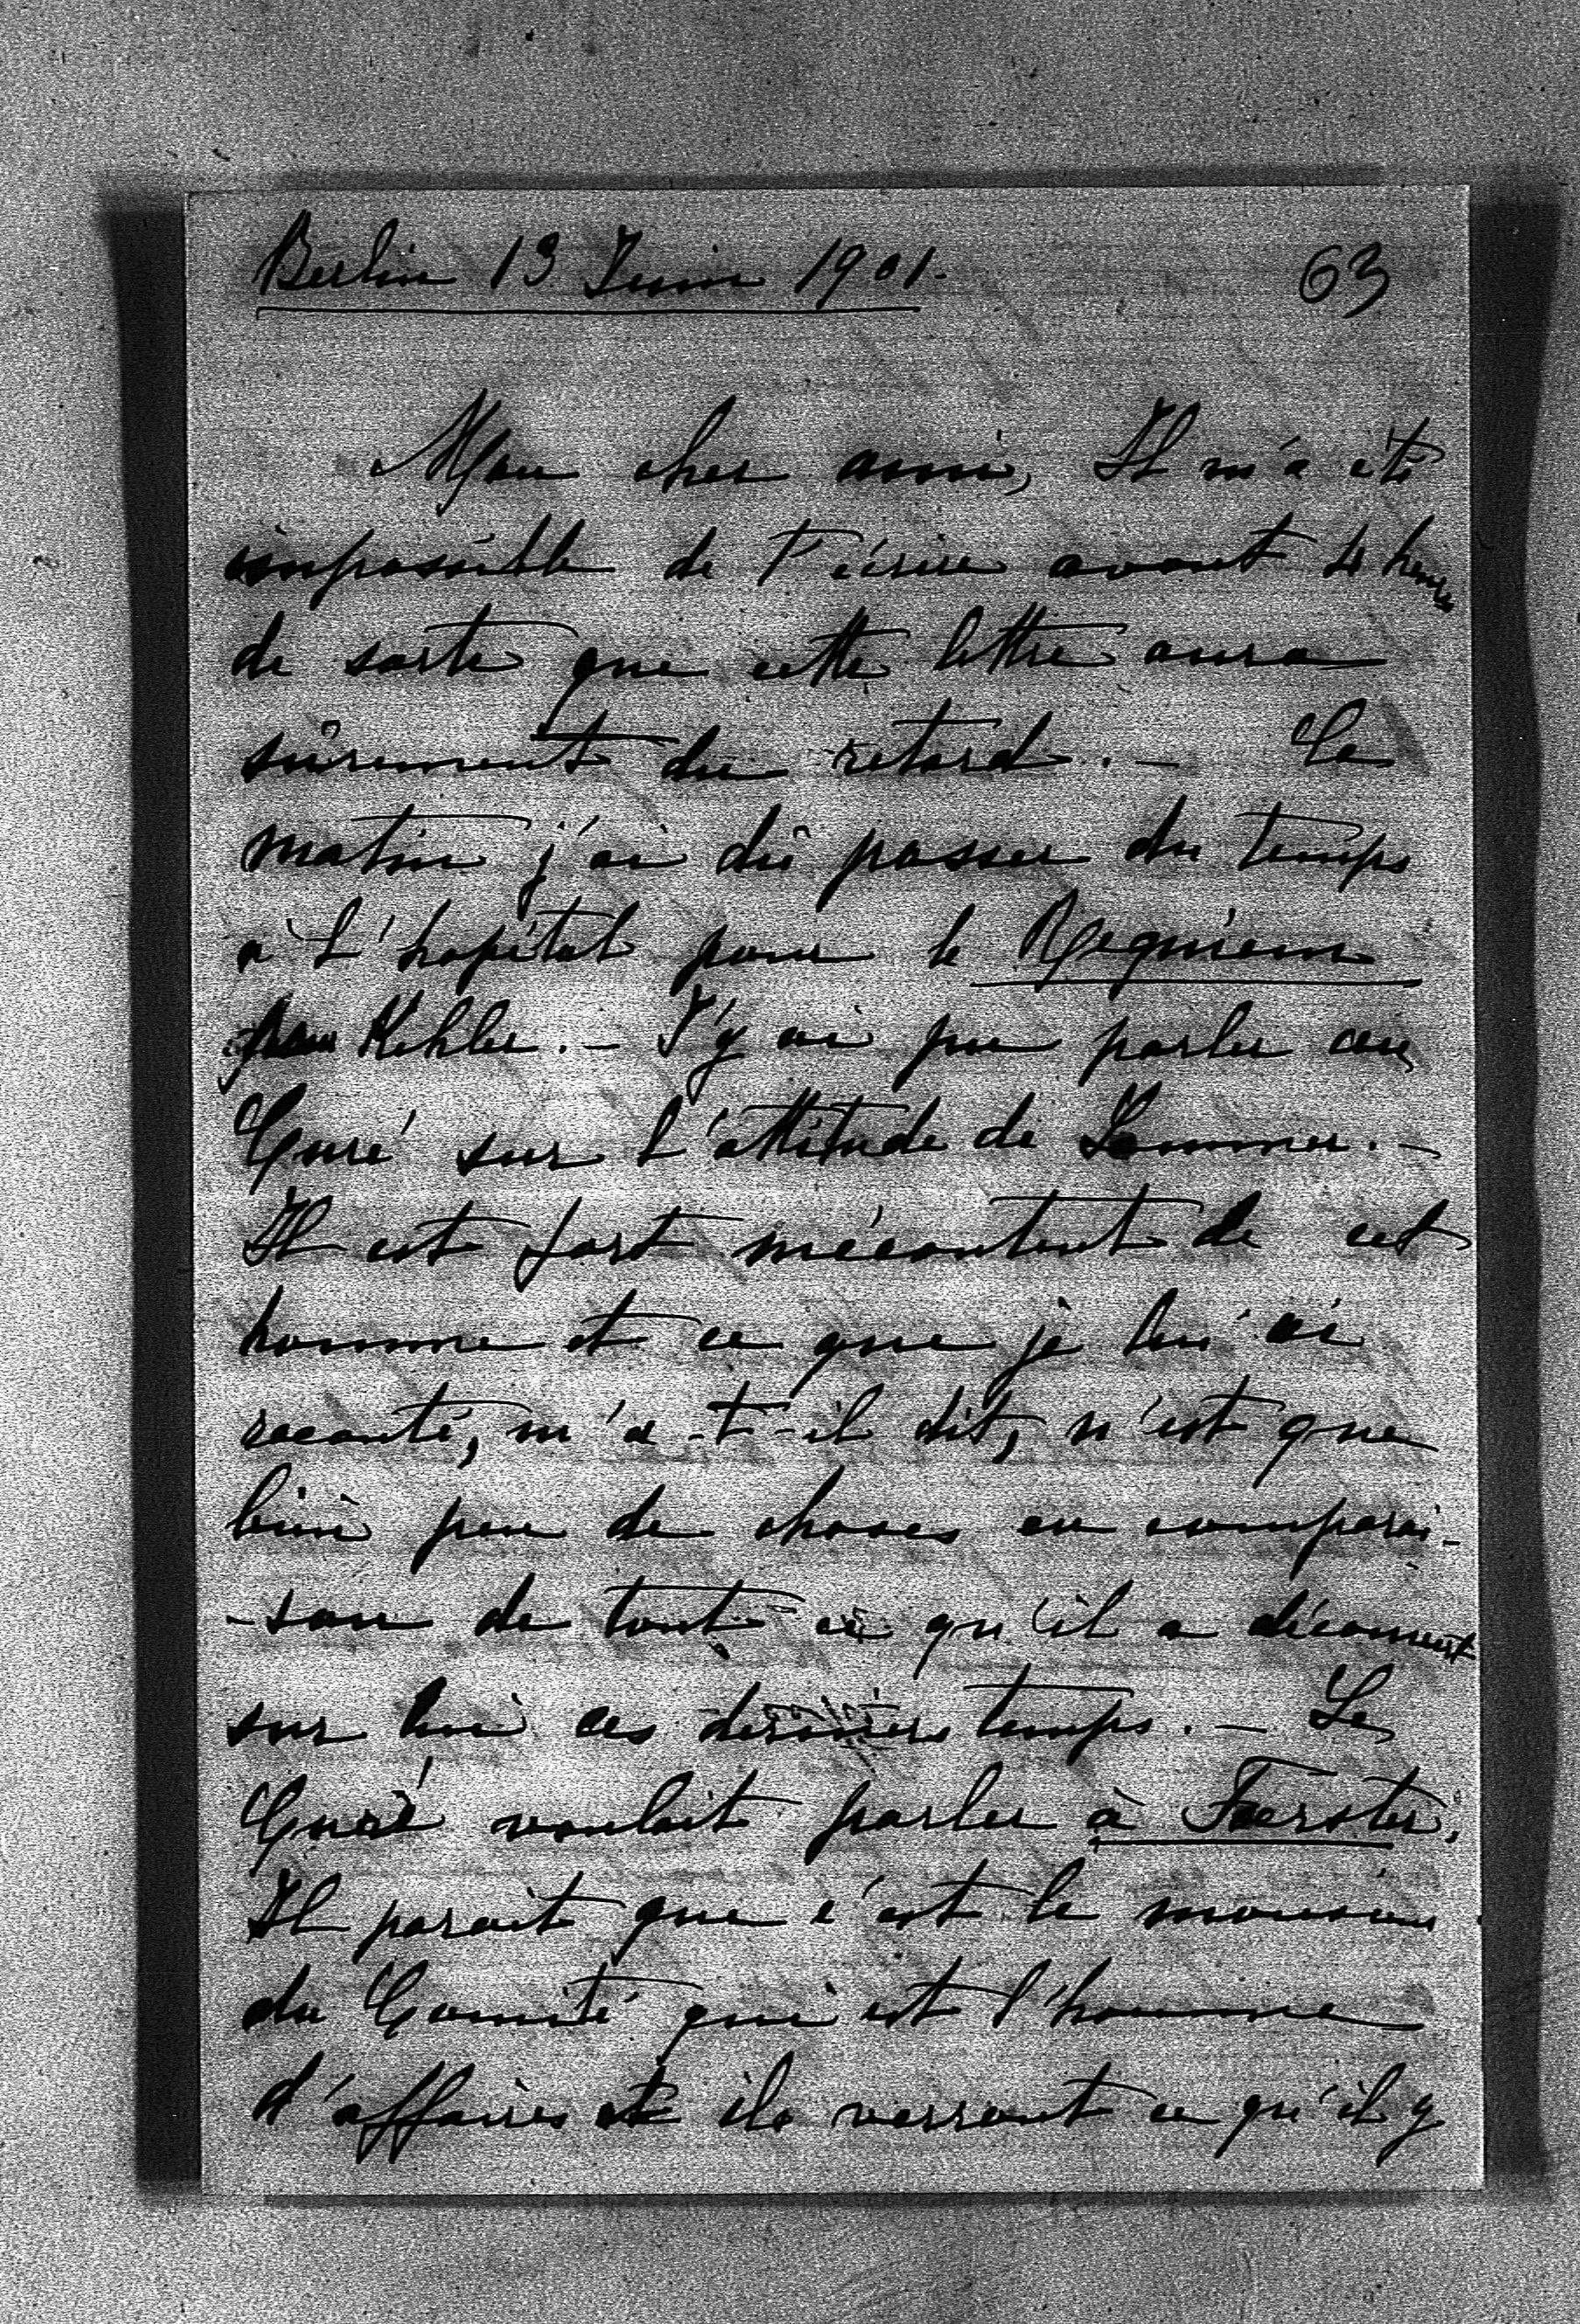 Berlin 13 Juin 1901.
63
Mon cher ami, Il m'a été
impossible de t'écrire avant 4 heures
de sorte que cette lettre aura
sûrement du retard. – Ce
matin j'ai dû passer du temps
à l'hopital pour le Requiem
pour Kehler. – J'y ai pu parler au
Curé sur l'attitude de Sommer. –
Il est fort mécontent de cet
homme et ce que je lui ai
raconté, m'a-t-il dit, n'est que
bien peu de choses en comparai-
-son de tout ce qu'il a découvert
sur lui ces derniers temps. – Le
Curé voulait parler à Foerster.
Il parait que c'est le monsieur
du Comité qui est l'homme
d'affaires et ils verront ce qu'il y